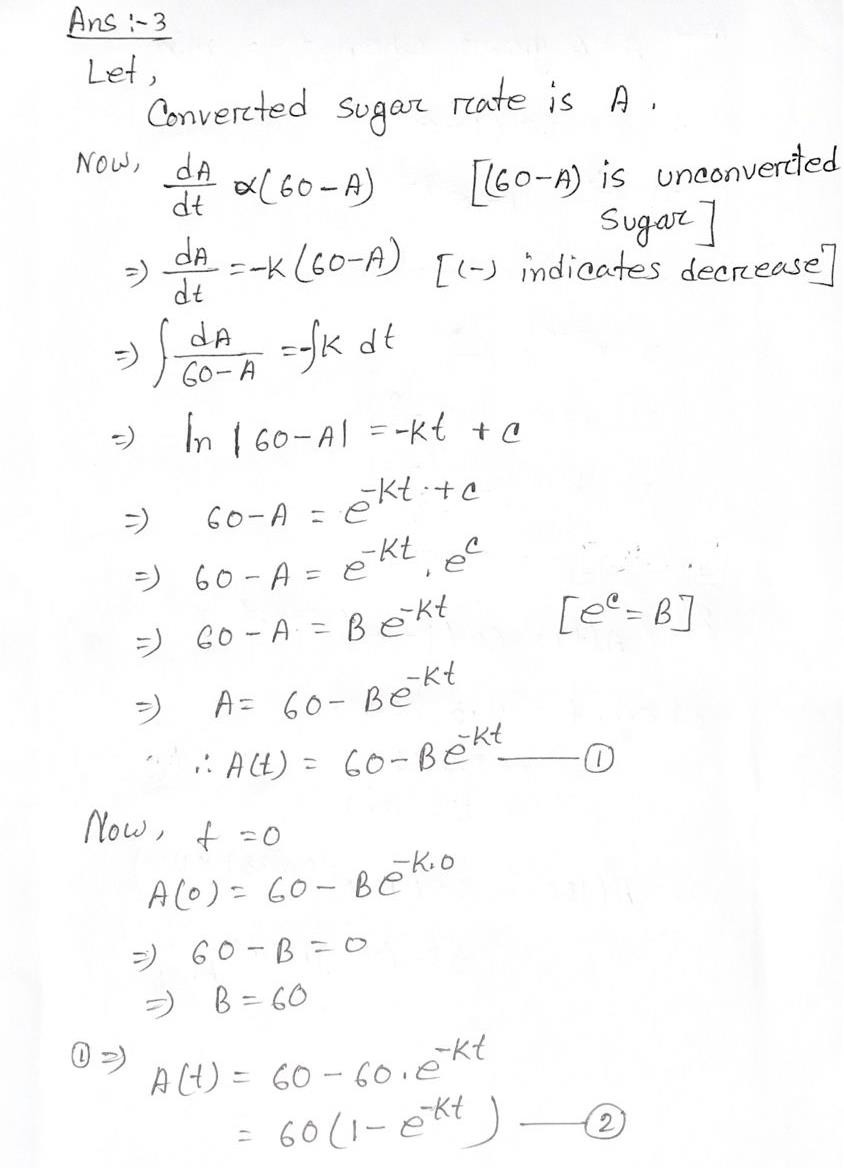 Ans :- 3
Let,
Converted sugar rate is A.
Now, dA/dt ∝ (60-A) [(60-A) is unconverted sugar]
=> dA/dt = -K(60-A) [(-) indicates decrease]
=> ∫ dA/(60-A) = -∫K dt
=> ln |60-A| = -Kt + c
=> 60-A = e^(-Kt+c)
=> 60-A = e^(-Kt) . e^c
=> 60-A = Be^(-Kt) [e^c = B]
=> A = 60-Be^(-Kt)
∴ A(t) = 60-Be^(-Kt) —— ①
Now, t = 0
A(0) = 60 - Be^(-K.0)
=> 60-B = 0
=> B = 60
① => A(t) = 60-60.e^(-Kt)
= 60(1-e^(-Kt)) —— ②